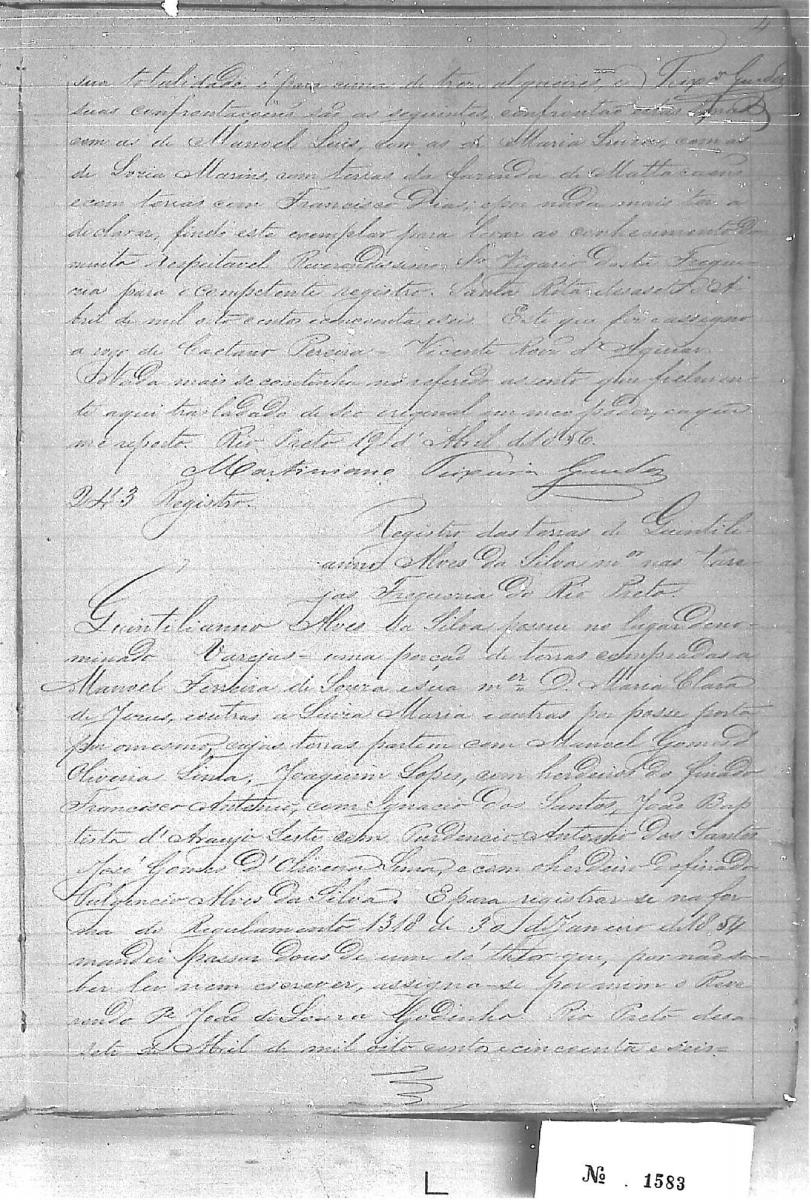 4
sua totalidade é para cima de tres alqueires, e Teixrª Guedes
suas confrontacoens são as seguintes, confrontão ellas
com as de Manoel Luis, com as de Maria Luiza, com as
de Luzia Marins, com terras da fazenda de Mattacaens
e com terras com Francisco Dias; e por nada mais ter a
declarar, findo este exemplar para levar ao conhecimento do
muito respeitavel Reverendissimo Snr Vigario desta Fregue-
zia para o competente registro. Santa Rita desasete d'A-
bril de mil oito centos e cincoenta e seis. Este que fiz e assigno
a rogo de Caetano Pereira - Vicente Roiz d'Aguiar.
Nada mais se continha no referido assento que fielmen-
te aqui trasladado de seo original em meo poder, ao qual
me reporto. Rio Preto 19 d'Abril de 1856.
Martiniano Teixeira Guedes
243 Registro.
Registro das terras de Quintili-
anno Alves da Silva mor nas Vare-
jas Freguezia do Rio Preto
Quintilianno Alves da Silva possue no lugar deno-
minado Varejas - uma porcão de terras compradas a
Manoel Ferreira de Souza e sua mer D. Maria Clara
de Jezus, e outras a Luiza Maria e outras por posse
por o mesmo, cujas terras partem com Manoel Gomes d'
Oliveira Lima, Joaquim Lopes, com herdeiros do finado
Francisco Antonio, com Ignacio dos Santos, João Bap-
tista d'Araujo Leste com Prudencio Antonio dos Santos
José Gomes d'Oliveira Lima, e com o herdeiro do finado
Fulgencio Alves da Silva. E para registrar-se na for-
ma do Regulamento 1318 de 30 de Janeiro de 1854
mandei passar dous de um só theor que, por não sa-
ber ler nem escrever, assigna-se por mim o Reve-
rendo Pe João de Souza Godinho. Rio Preto desa-
sete de Abril de mil oito cento e cincoenta e seis -
L
No. 1583